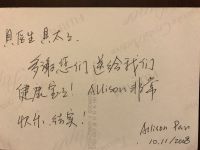 贝医生贝太太。
多谢您们送给我们
健康宝宝! Allison非常
快乐, 结实!
Allison Pan
10.11/2008